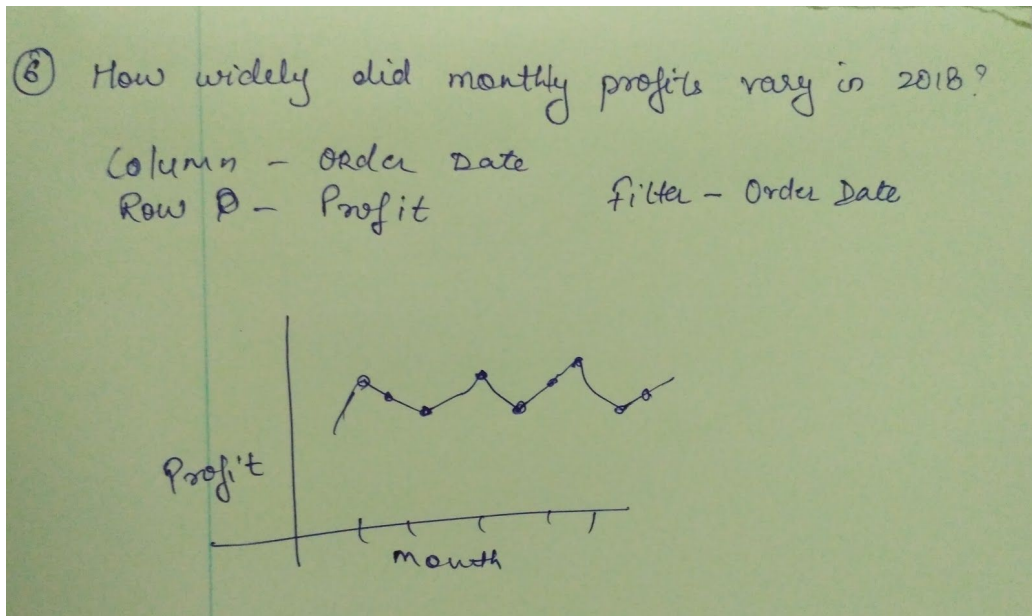 6 How widely did monthly profits vary in 2018?
Column - Order Date
Row - Profit
Filter - Order Date
Profit
Month